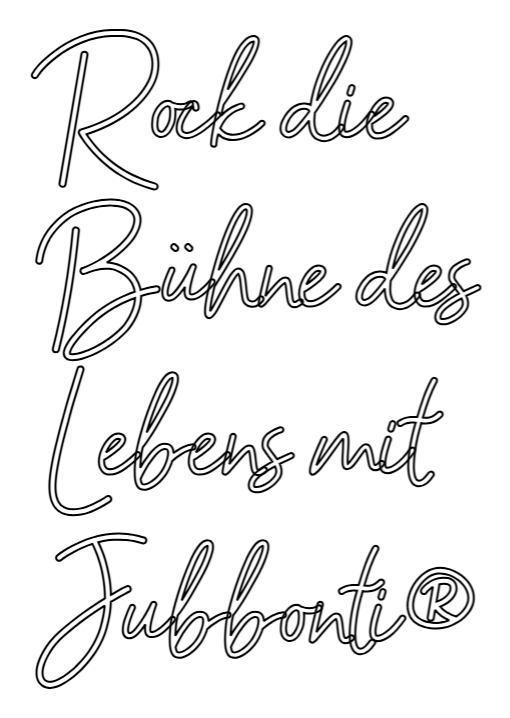 Rock die
Bühne des
Lebens mit
Jubbonti®